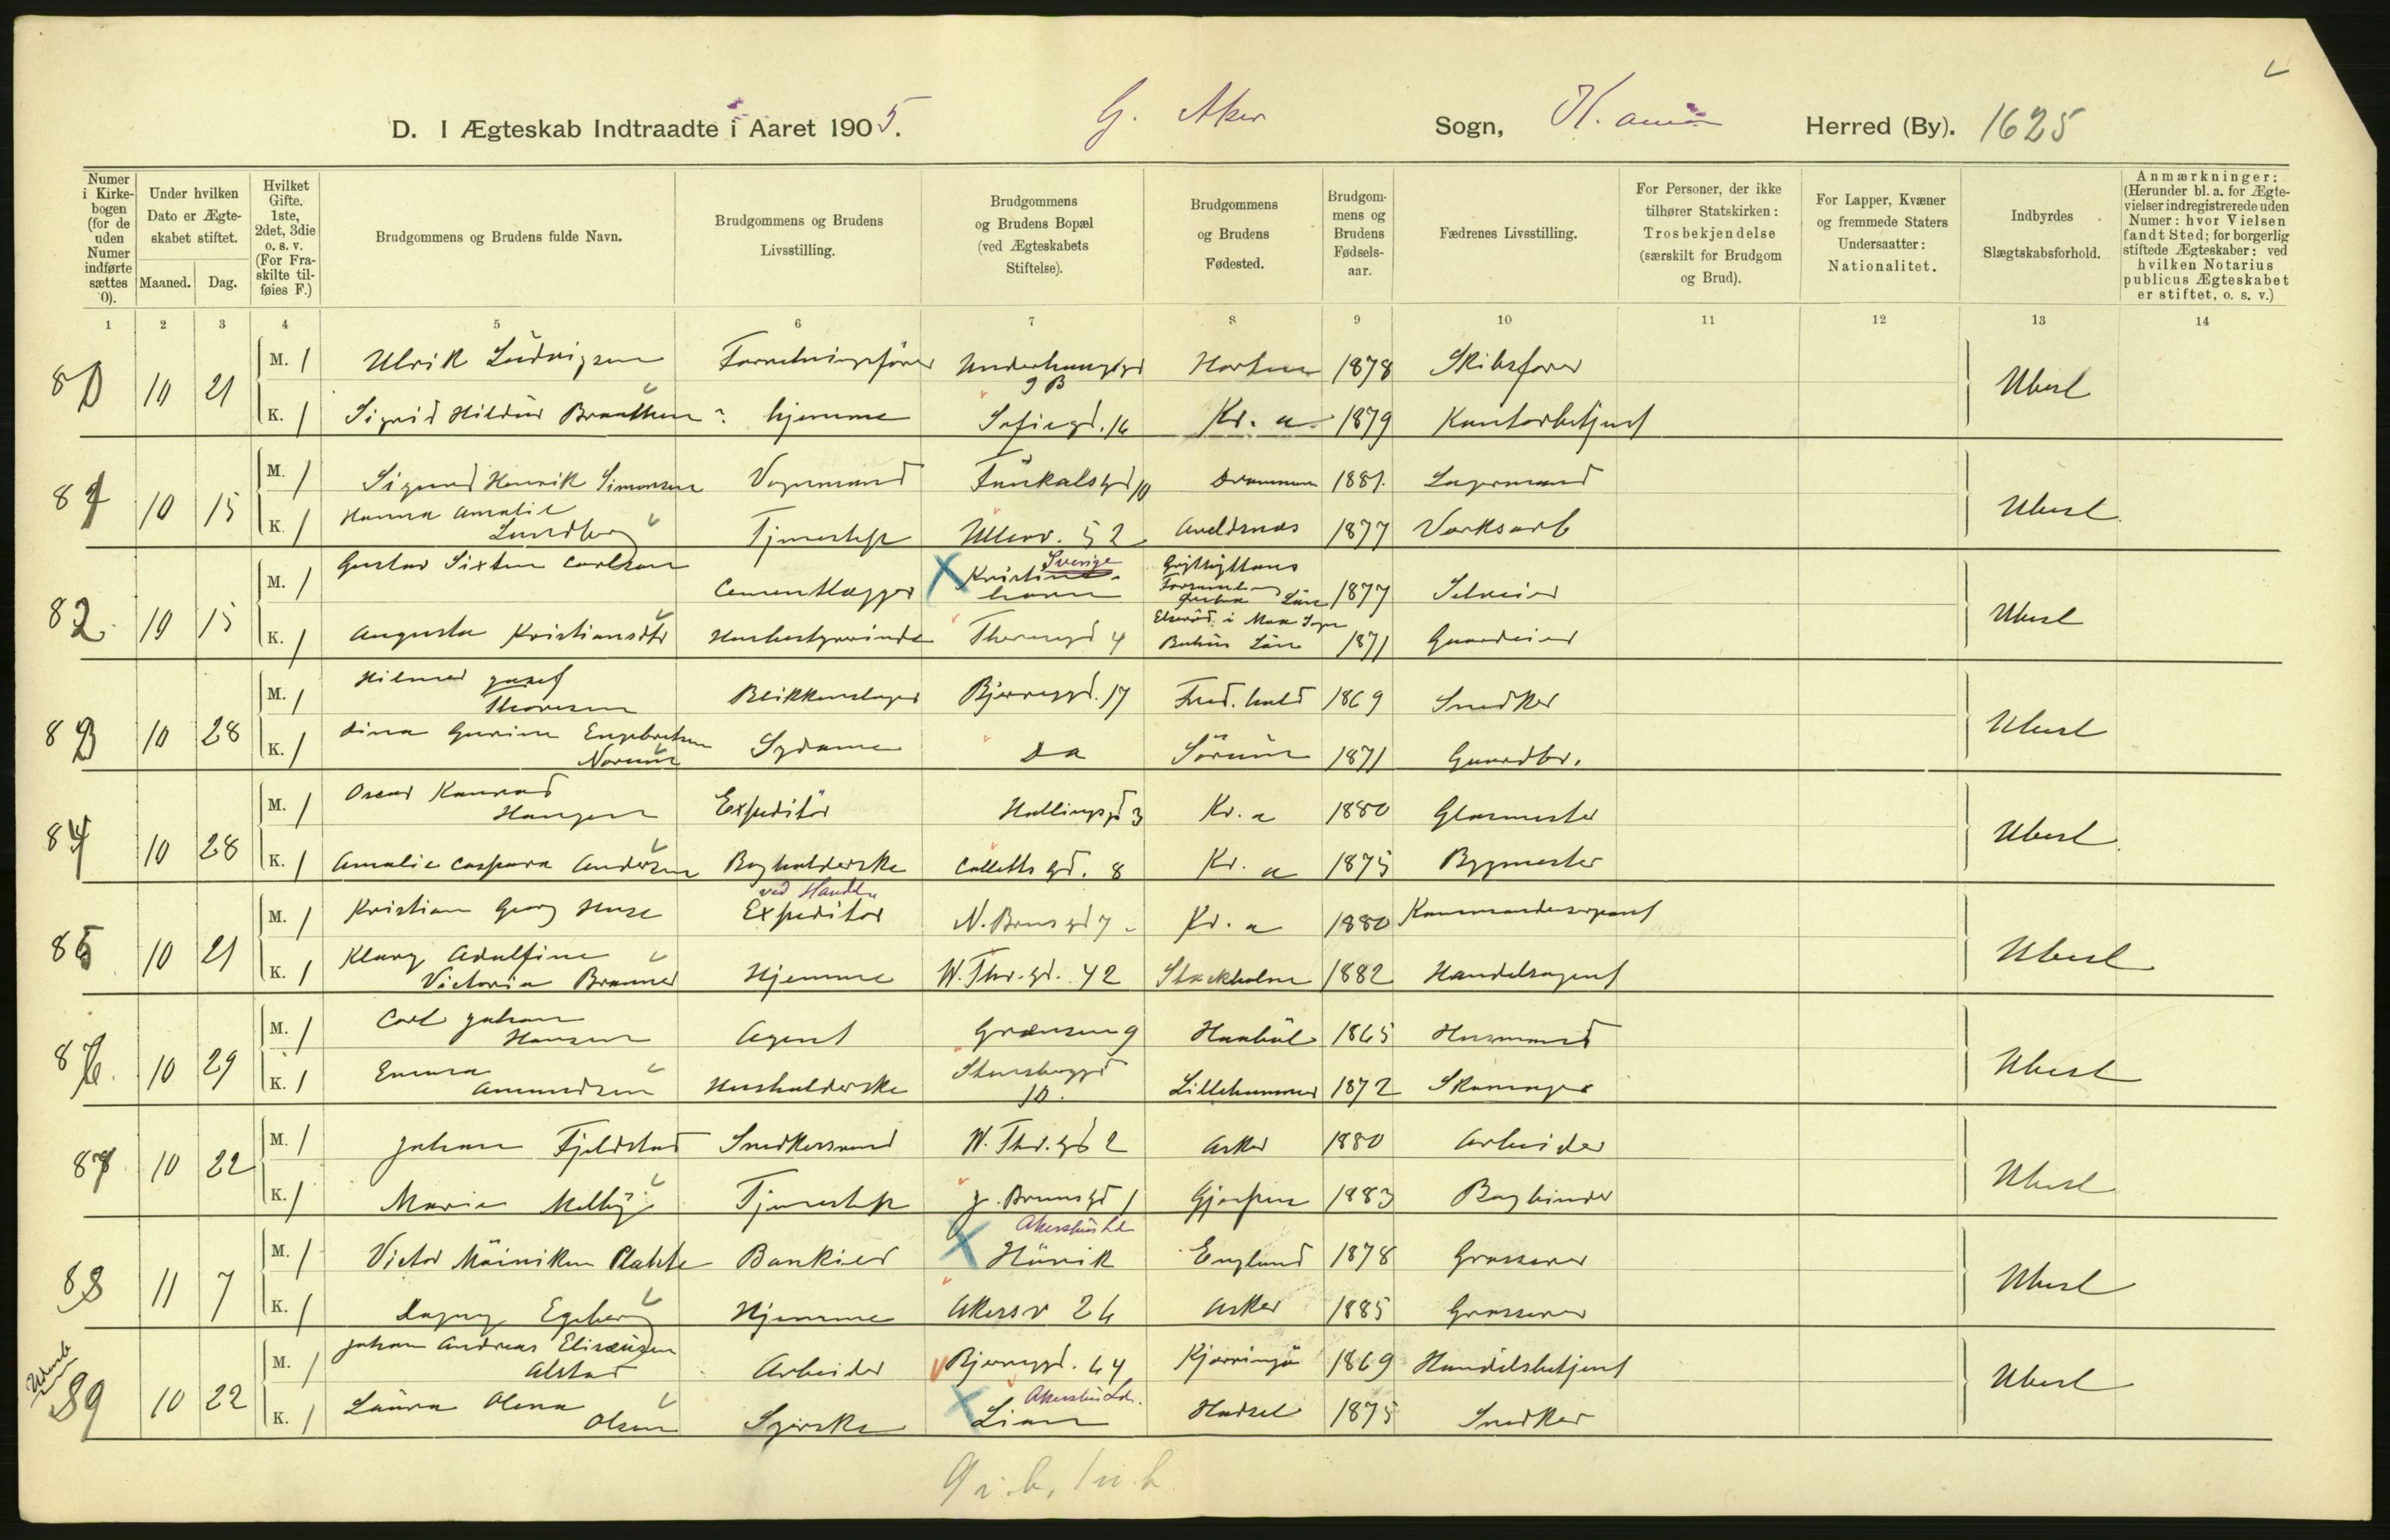 D. I Ægteskab Indtraadte i Aaret 1905. G. Aker Sogn, Herred (By). 1625
Numer i Kirkebogen (for de uden Numer indførte sættes 0).
Under hvilken Dato er Ægteskabet stiftet.
Maaned. Dag.
Hvilket Gifte. 1ste, 2det, 3die o. s. v. (For Fraskilte tilføies F.)
Brudgommens og Brudens fulde Navn.
Brudgommens og Brudens Livsstilling.
Brudgommens og Brudens Bopæl (ved Ægteskabets Stiftelse).
Brudgommens og Brudens Fødested.
Brudgommens og Brudens Fødselsaar.
Fædrenes Livsstilling.
For Personer, der ikke tilhører Statskirken: Trosbekjendelse (særskilt for Brudgom og Brud).
For Lapper, Kvæner og fremmede Staters Undersaatter: Nationalitet.
Indbyrdes Slægtskabsforhold.
Anmærkninger: (Herunder bl. a. for Ægtevielser indregistrerede uden Numer: hvor Vielsen fandt Sted; for borgerlig stiftede Ægteskaber: ved hvilken Notarius publicus Ægteskabet er stiftet, o. s. v.)
1 2 3 4 5 6 7 8 9 10 11 12 13 14
80 10 21 M. 1 Ulrik Ludvigsen Forretningsfører 9 B Horten 1878 Skibsfører Ubesl
K. 1 Sigrid Hildur hjemme Sofiegd. 16 Kr. a 1879 Kontorbetjent
81 10 15 M. 1 Sigurd Henrik Simonsen Vognmand 10 Drammen 1881. Lagermand Ubesl.
K. 1 Hanna Amalie Lundberg Tjenestep Ullev. 52 1877 Verksarb
82. 10 15 M. 1 Gustav Sixten Carlson Cementlægger X Kristinehavn Sverige Län 1877 Ubesl
K. 1 Augusta Kristiansdtr Theresesgd 4 Bohus Län 1871 Gaardeier
83 10 28 M. 1 Hilmar Josef Thoresen Blikkenslager Bjerregd. 17 Fred.hald 1869 Snedker Ubesl
K. 1 Lina Gurine Engebretsen Norum Sydame Do Sørum 1871 Gaardbr.
84 10 28 M. 1 Oscar Konrad Hansen Expeditør Hallingsgd 3 Kr. a 1880 Glasmester Ubesl.
K. 1 Amalie Caspara Andersen Bogholderske Colletts gd. 8 Kr. a 1875 Bygmester
85 10 21 M. 1 Kristian Georg Huse Expeditør ved Handel N. Bruns gd 7 Kr. a 1880 Kommandersergeant Ubesl
K. 1 Klary Adolfine Victoria Hjemme W. Thr. gd. 42 Stockholm 1882 Handelsagent
86. 10 29 M. 1 Carl Johan Hansen Agent Grænsen 9 Haabøl 1865 Husmand Ubesl
K. 1 Emma Amundsen Husholderske Stensberggd 10. Lillehammer 1872 Skomager
87 10 22 M. 1 Johan Fjeldstad Snedkersvend W. Thr. gd 2 Asker 1880 Arbeider Ubesl
K. 1 Marie Melby Tjenestep J. Bruns gd 1 Gjerpen 1883 Bogbinder
88 11 7 M. 1 Victor Bankier X Akershus Hövik England 1878 Grosserer Ubesl
K. 1 Dagny Egeberg Hjemme Akersv 26 Asker 1885 Grosserer
89 10 22 M. 1 Johan Andreas Eliseusen Alstad Arbeider Bjerregd. 64 Kjerringø 1869 Handelsbetjent Ubesl
K. 1 Laura Olena Olsen Syerske X Akershus Lian Hadsel 1875 Snedker
9 i.b, 1 u.b